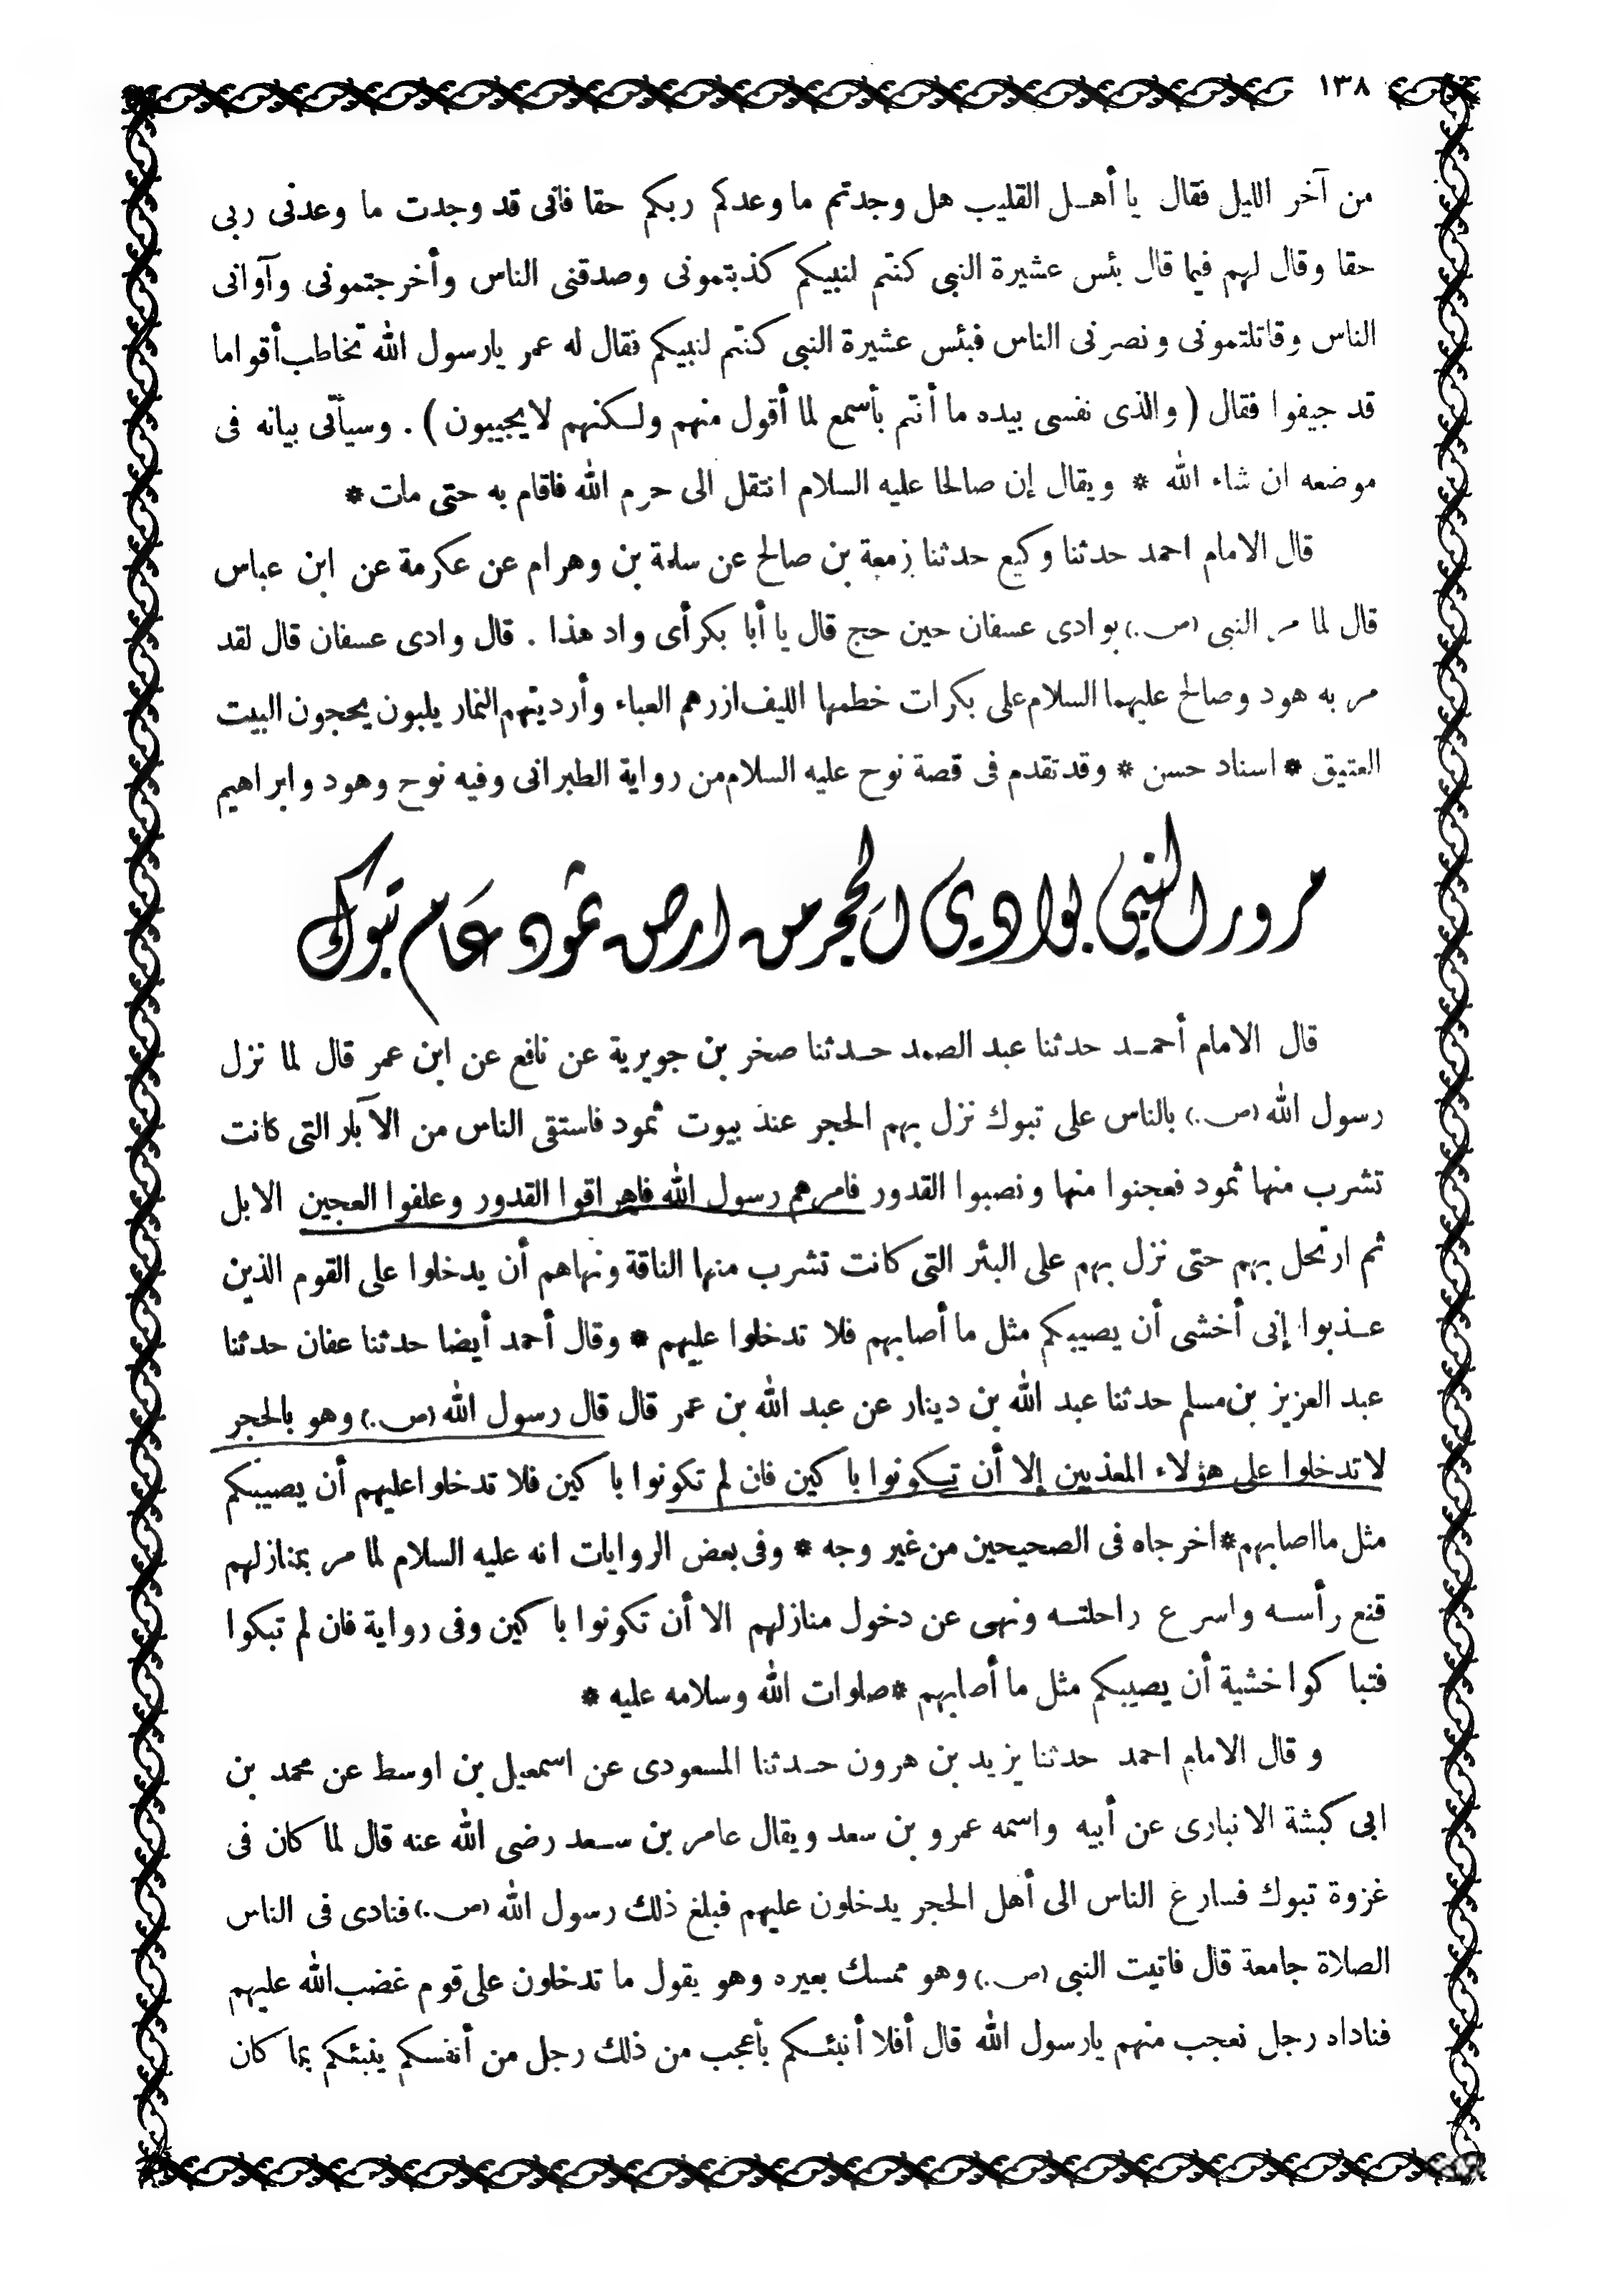 ١٣٨
من آخر الليل فقال يا أهـل القليب هل وجدتم ما وعدكم ربكم حقا فانى قد وجدت ما وعدنى ربى
حقا وقال لهم فيما قال بئس عشيرة النبى كنتم لنبيكم كذبتمونى وصدقنى الناس وأخرجتمونى وآوانى
الناس وقاتلتمونى ونصرنى الناس فبئس عشيرة النبى كنتم لنبيكم فقال له عمر يارسول الله تخاطب أقواما
قد جيفوا فقال ( والذى نفسى بيده ما أنتم بأسمع لما أقول منهم ولـكنهم لايجيبون ) . وسيأتى بيانه فى
موضعه ان شاء الله * ويقال إن صالحا عليه السلام انتقل الى حرم الله فاقام به حتى مات *
قال الامام احمد حدثنا وكيع حدثنا زمعة بن صالح عن سلمة بن وهرام عن عكرمة عن ابن عباس
قال لما مر النبى (ص.) بوادى عسفان حين حج قال يا أبا بكر أى واد هذا . قال وادى عسفان قال لقد
مر به هود وصالح عليهما السلام على بكرات خطمها الليف ازرهم العباء وأرديتهم النمار يلبون يحجون البيت
العتيق * اسناد حسن * وقد تقدم فى قصة نوح عليه السلام من رواية الطبرانى وفيه نوح وهود وابراهيم
مرور النبي بوادي الحجر من ارض ثمود عام تبوك
قال الامام أحمـد حدثنا عبد الصمد حـدثنا صخر بن جويرية عن نافع عن ابن عمر قال لما نزل
رسول الله (ص.) بالناس على تبوك نزل بهم الحجر عند بيوت ثمود فاستقى الناس من الآبار التى كانت
تشرب منها ثمود فعجنوا منها ونصبوا القدور فامرهم رسول الله فاهراقوا القدور وعلفوا العجين الابل
ثم ارتحل بهم حتى نزل بهم على البئر التى كانت تشرب منها الناقة ونهاهم أن يدخلوا على القوم الذين
عـذبوا إنى أخشى أن يصيبكم مثل ما أصابهم فلا تدخلوا عليهم * وقال أحمد أيضا حدثنا عفان حدثنا
عبد العزيز بن مسلم حدثنا عبد الله بن دينار عن عبد الله بن عمر قال قال رسول الله (ص.) وهو بالحجر
لاتدخلوا على هؤلاء المعذبين إلا أن تـكونوا باكين فان لم تكونوا باكين فلا تدخلوا عليهم أن يصيبكم
مثل ما اصابهم * اخرجاه فى الصحيحين من غير وجه * وفى بعض الروايات انه عليه السلام لما مر بمنازلهم
قنع رأسـه واسرع راحلتـه ونهى عن دخول منازلهم الا أن تكونوا باكين وفى رواية فان لم تبكوا
فتباكوا خشية أن يصيبكم مثل ما أصابهم * صلوات الله وسلامه عليه *
و قال الامام احمد حدثنا يزيد بن هرون حـدثنا المسعودى عن اسمعيل بن اوسط عن محمد بن
ابى كبشة الانبارى عن أبيه واسمه عمرو بن سعد ويقال عامر بن سـعد رضى الله عنه قال لما كان فى
غزوة تبوك فسارع الناس الى أهل الحجر يدخلون عليهم فبلغ ذلك رسول الله (ص.) فنادى فى الناس
الصلاة جامعة قال فاتيت النبى (ص.) وهو ممسك بعيره وهو يقول ما تدخلون على قوم غضب الله عليهم
فناداه رجل نعجب منهم يارسول الله قال أفلا أنبئـكم بأعجب من ذلك رجل من أنفسكم ينبئكم بما كان